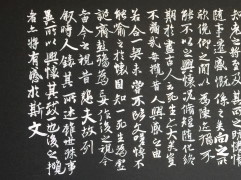 隨事遷感慨係之矣向之所
欣俛仰之閒以為陳迹猶不
能不以之興懷況脩短隨化終
期於盡古人云死生亦大矣豈
不痛哉每攬昔人興感之由
若合一契未嘗不臨文嗟悼不
能喻之於懷固知一死生為虛
誕齊彭殤為妄作後之視今
亦由今之視昔悲夫故列
叙時人錄其所述雖世殊事
異所以興懷其致一也後之攬
者亦將有感於斯文